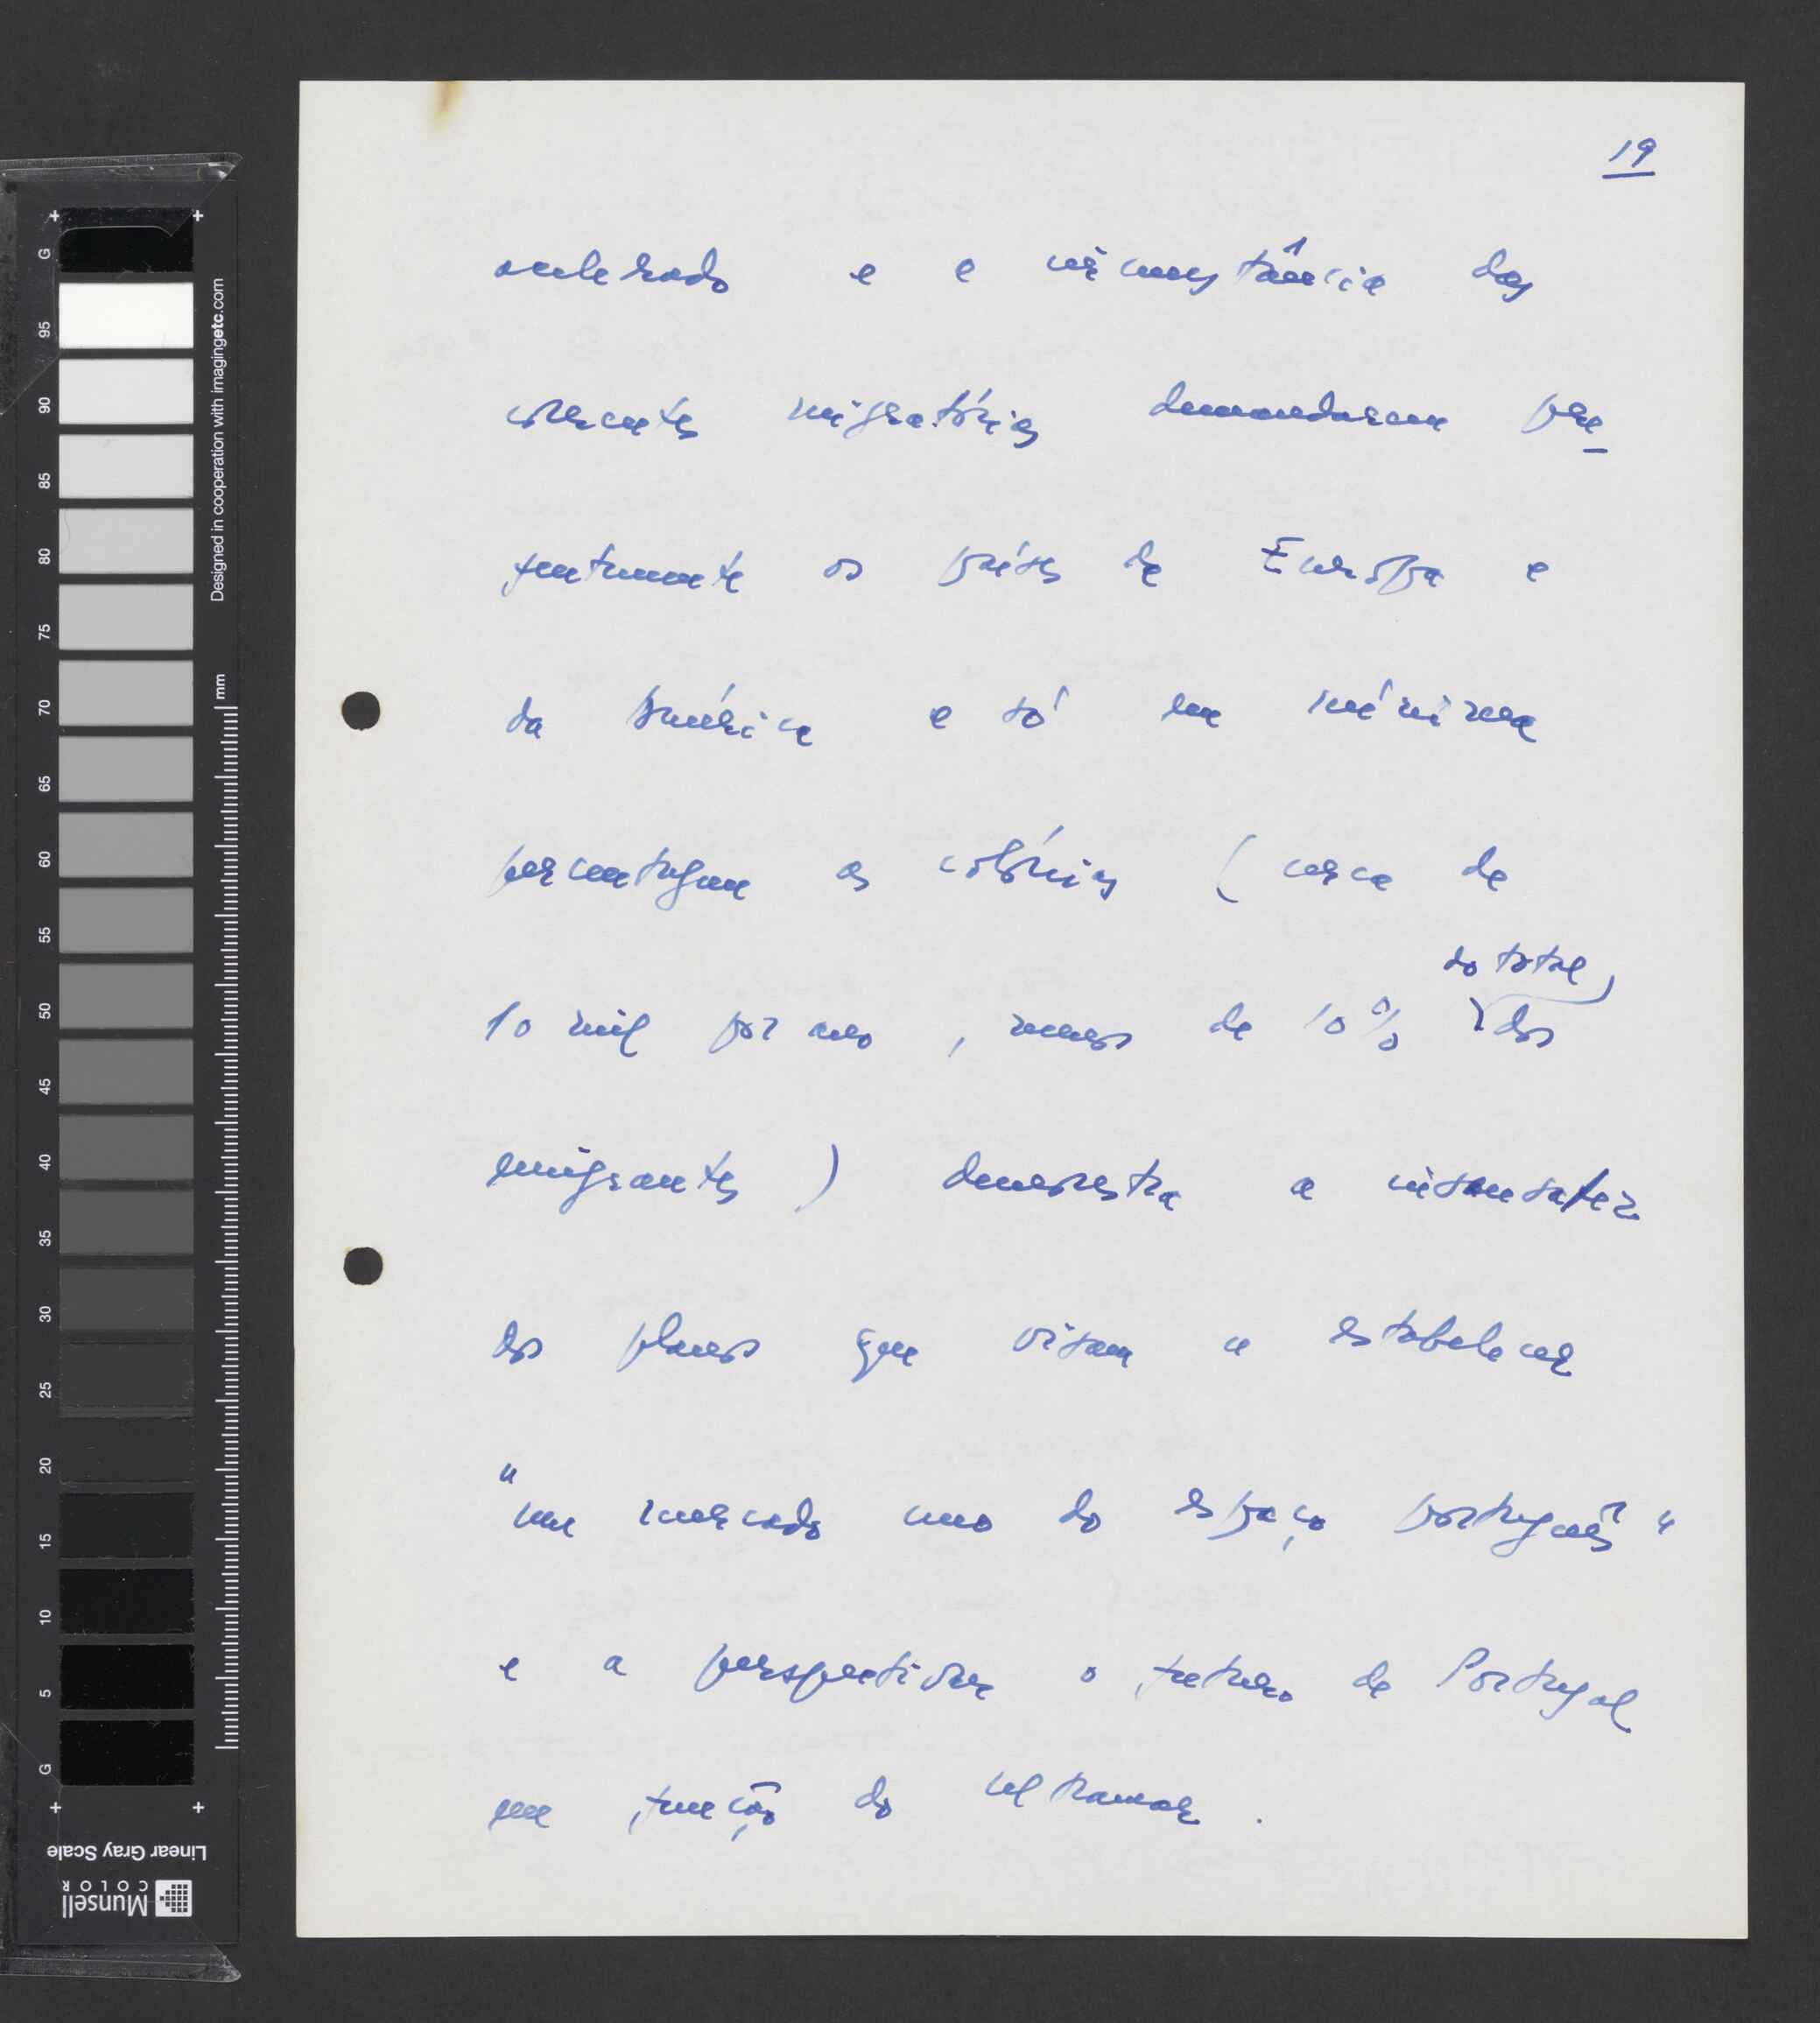 19
acelerado e a circunstância das
correntes migratórias demandarem pre-
ferentemente os países da Europa e
da América e só em mínima
percentagem as colónias (cerca de
do total,
10 mil por ano, menos de 10% dos
emigrantes) demonstra a insensatez
dos planos que visam a estabelecer
"um mercado uno do espaço português"
e a perspectivar o futuro de Portugal
em função do ultramar.
G
95
90
85
80
75
70
65
60
55
50
45
40
35
30
25
20
15
10
5
G
Designed in cooperation with imagingetc.com
mm
Linear Gray Scale
Munsell
COLOR